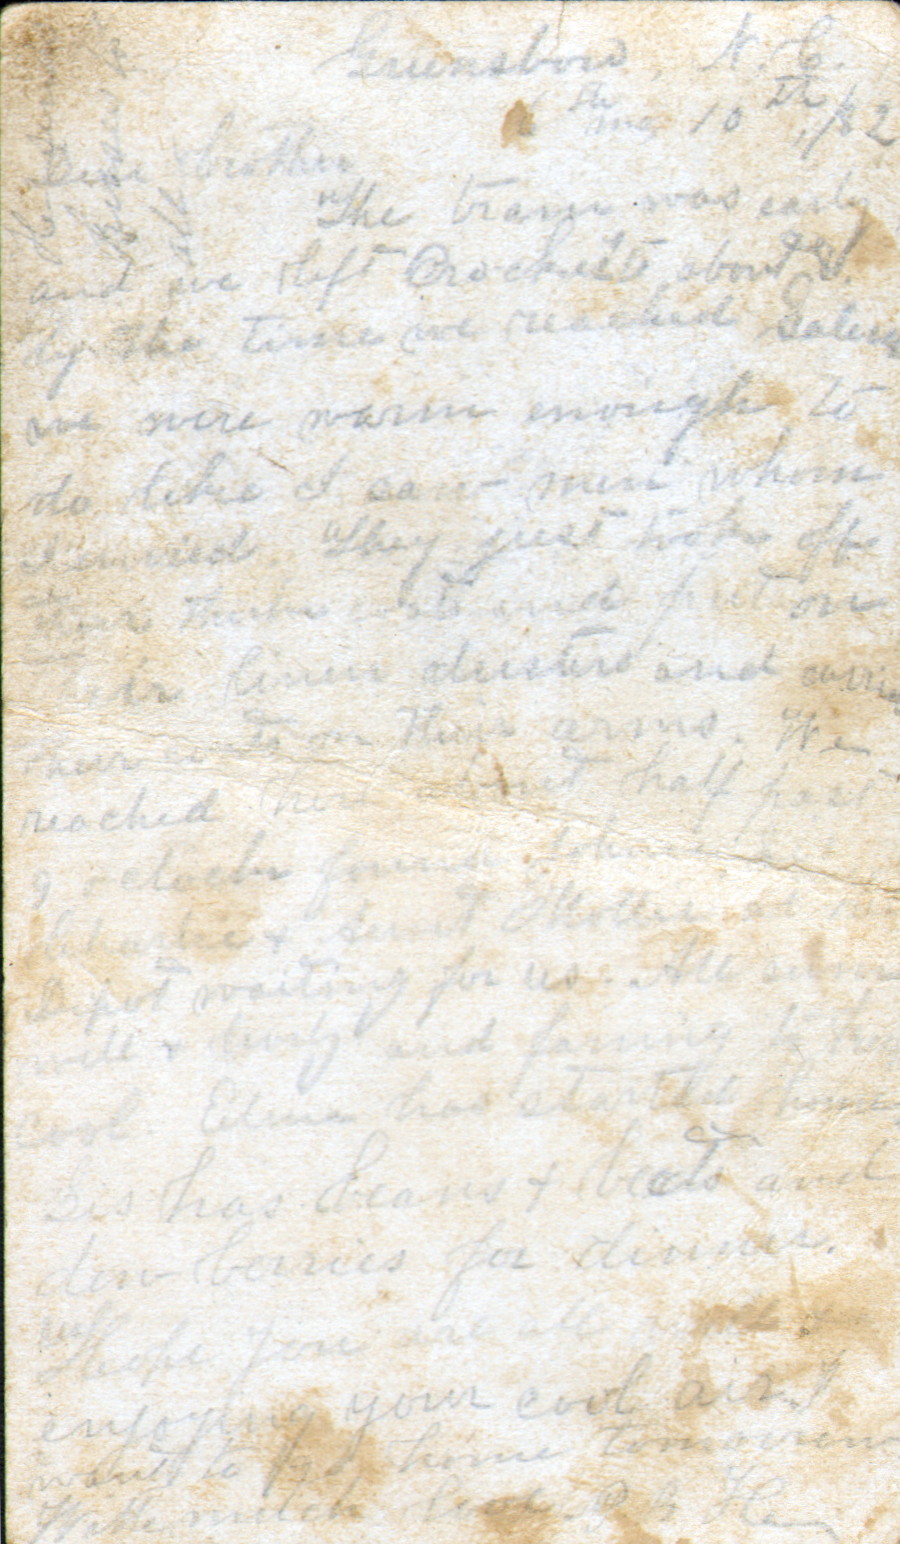 Greensboro, N.C.
6th mo. 10th,
Dear brother
The train was early
and we left about
by the time we reached Salem
we were warm enough to
do like I saw men whom
I envied. They just took off
their coats and put on
their linen dusters and
their coats on their arms. We
reached here about half past
9 o'clock found
Charlie + Aunt Mollie at
Depot waiting for us. All
well + lively and fanning to keep
cool. has started home
Sis has beans + beets and
dew berries for dinner.
I hope you are all well +
enjoying your cool air. I
want to go home tomorrow
With much love